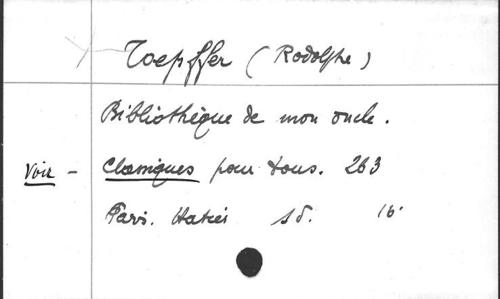 Toepffer (Rodolphe)
Bibliothèque de mon oncle.
Voir - Classiques pour tous. 263
Paris. Hatier s d. 16.